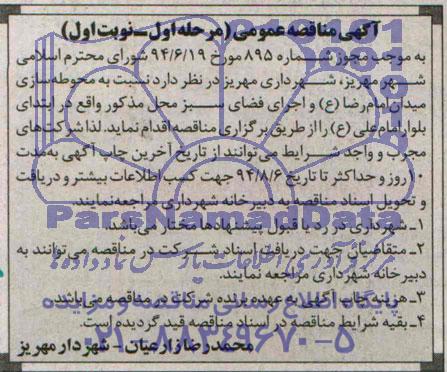 آگهی مناقصه عمومی (مرحله اول - نوبت اول)
به موجب مجوز شماره ۸۹۵ مورخ ۹۴/۶/۱۹ شورای محترم اسلامی
شهر مهریز، شهرداری مهریز در نظر دارد نسبت به محوطه سازی
میدان امام رضا (ع) و اجرای فضای سبز محل مذکور واقع در ابتدای
بلوار امام علی (ع) را از طریق برگزاری مناقصه اقدام نماید. لذا شرکت های
مجرب و واجد شرایط می توانند از تاریخ آخرین چاپ آگهی به مدت
۱۰ روز و حداکثر تا تاریخ ۹۴/۸/۶ جهت کسب اطلاعات بیشتر و دریافت
و تحویل اسناد مناقصه به دبیرخانه شهرداری مراجعه نمایند.
ParsNamadData
۱- شهرداری در رد یا قبول پیشنهادها مختار می باشد.
۲- متقاضیان جهت دریافت اسناد شرکت در مناقصه می توانند به
دبیرخانه شهرداری مراجعه نمایند.
۳- هزینه چاپ آگهی به عهده برنده شرکت در مناقصه می باشد.
۴- بقیه شرایط مناقصه در اسناد مناقصه قید گردیده است.
۰۲۱-۸۸۳۴۹۶۷۰-۵
محمدرضا زارعیان - شهردار مهریز